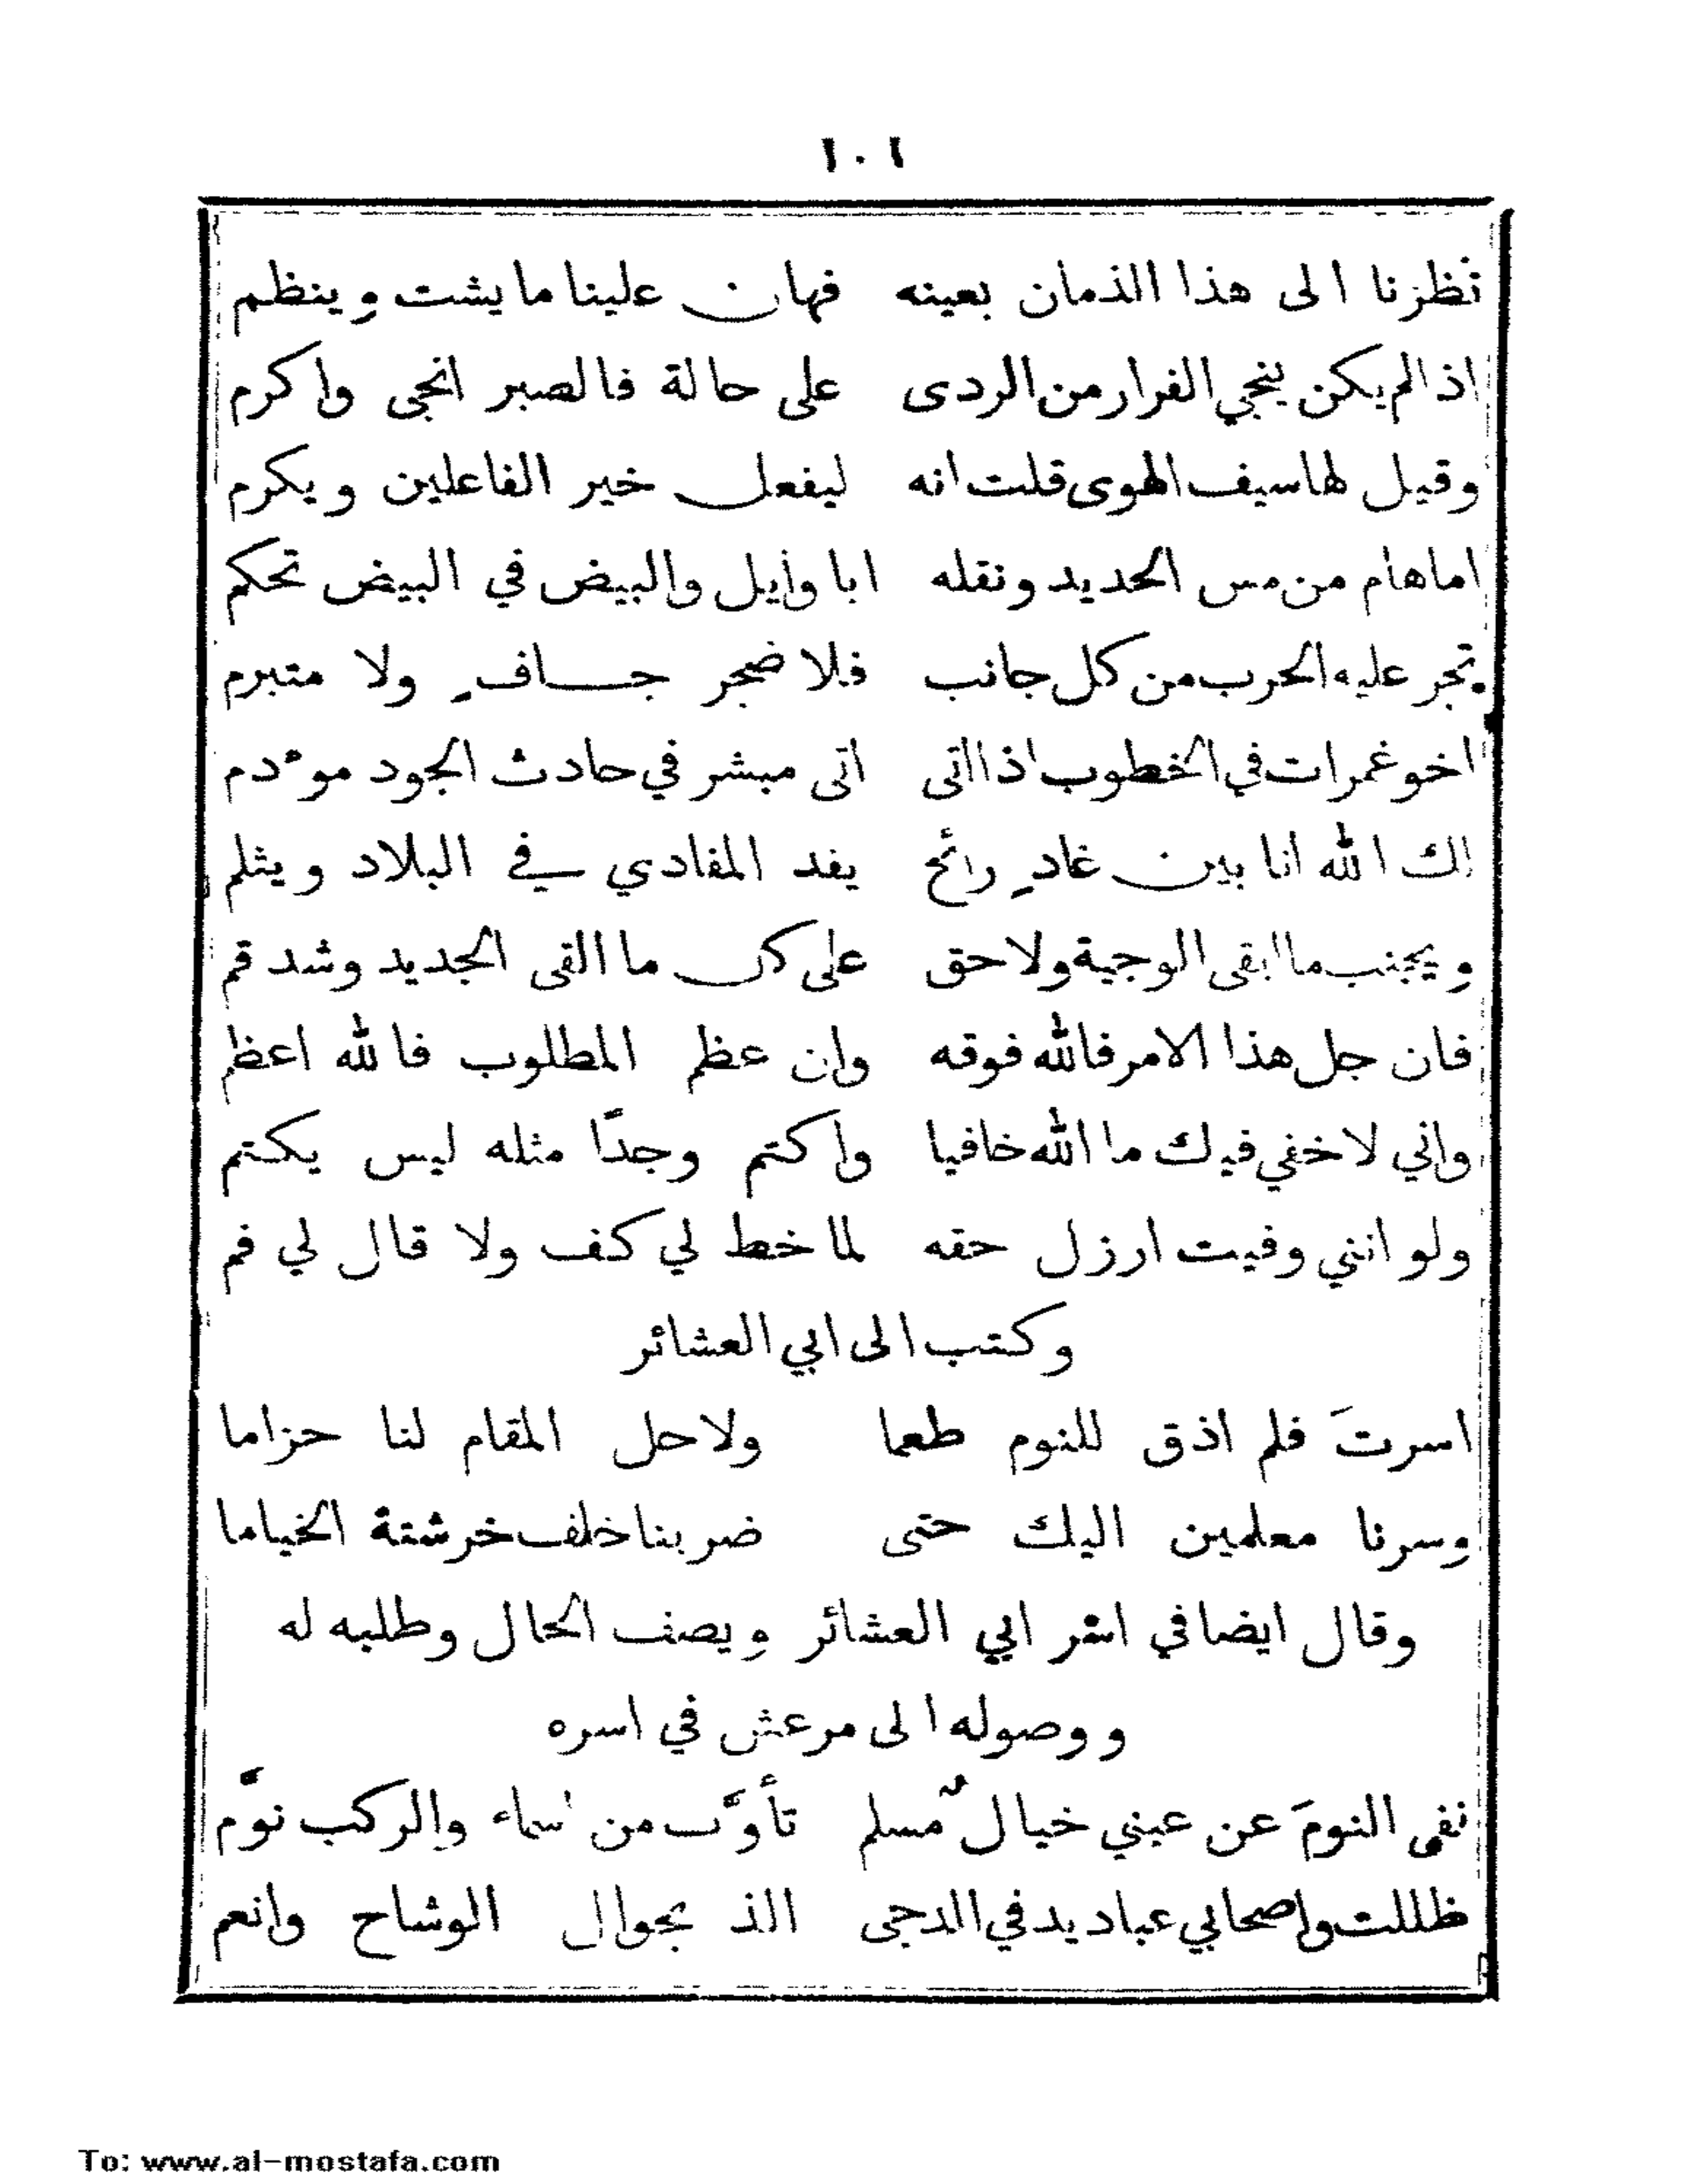 ١٠١
نظرنا الى هذا الذمان بعينه فهان علينا ما يشت وينظم
اذا لم يكن ينجي الفرار من الردى على حالة فالصبر انجى واكرم
وقيل لها سيف الهوى قلت انه ليفعل خير الفاعلين ويكرم
اما هام من مس الحديد ونقله ابا وأيل والبيض في البيض تحكم
تجر عليه الحرب من كل جانب فلا ضجر جاف ولا متبرم
اخو غمرات في الخطوب اذا اتى اتى مبشر في حادث الجود موءدم
لك الله انا بين غادٍ رائح يفد المفادي في البلاد ويثلم
ويجنب ما ابقى الوجية ولاحق على كل ما القى الجديد وشدقم
فان جل هذا الامر فالله فوقه وان عظم المطلوب فالله اعظم
واني لاخفي فيك ما الله خافيا واكتم وجدًا مثله ليس يكتم
ولو انني وفيت ارزل حقه لما خط لي كف ولا قال لي فم
وكتب الى ابي العشائر
اسرتَ فلم اذق للنوم طعما ولا حل المقام لنا حزاما
وسرنا معلمين اليك حتى ضربنا خلف خرشنة الخياما
وقال ايضا في اسر ابي العشائر ويصف الحال وطلبه له
ووصوله الى مرعش في اسره
نفى النومَ عن عيني خيالٌ مسلم تأوَّب من اسماء والركب نوَّم
ظللت واصحابي عباديد في الدجى الذ بجوال الوشاح وانعم
To: www.al-mostafa.com